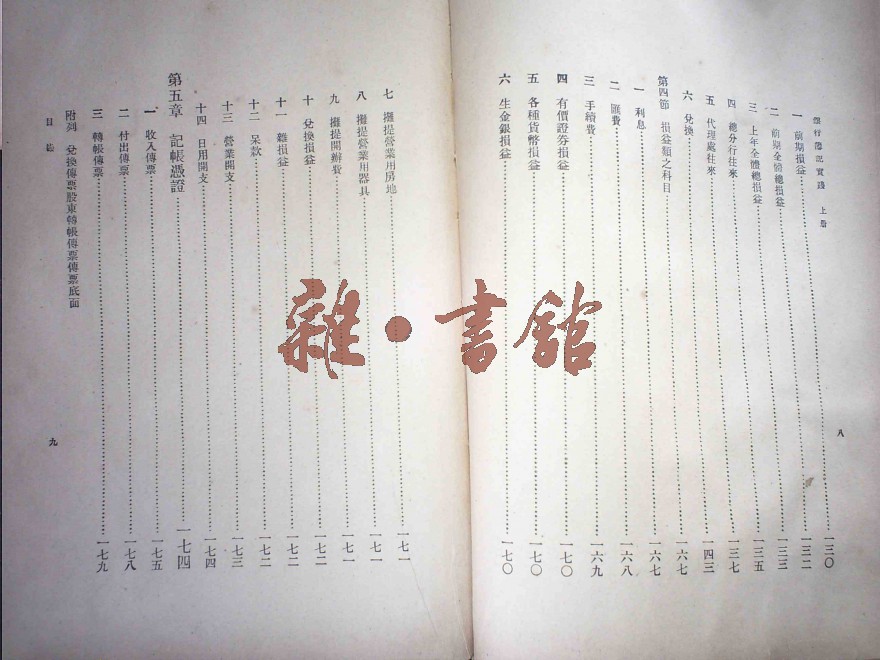 銀行簿記實踐　上册
一　前期損益……一三〇
二　前期全體總損益……一三二
三　上年全體總損益……一三三
四　總分行往來……一三五
五　代理處往來……一三七
六　兌換……一四三
第四節　損益類之科目……一六七
一　利息……一六七
二　匯費……一六八
三　手續費……一六九
四　有價證券損益……一七〇
五　各種貨幣損益……一七〇
六　生金銀損益……一七〇
八
七　攤提營業用房地……一七一
八　攤提營業用器具……一七一
九　攤提開辦費……一七一
十　兌換損益……一七二
十一　雜損益……一七二
十二　呆款……一七二
十三　營業開支……一七三
十四　日用開支……一七四
第五章　記帳憑證……一七四
一　收入傳票……一七五
二　付出傳票……一七八
三　轉帳傳票……一七九
附列　兌換傳票股東轉帳傳票傳票底面
目錄
九
雜·書館